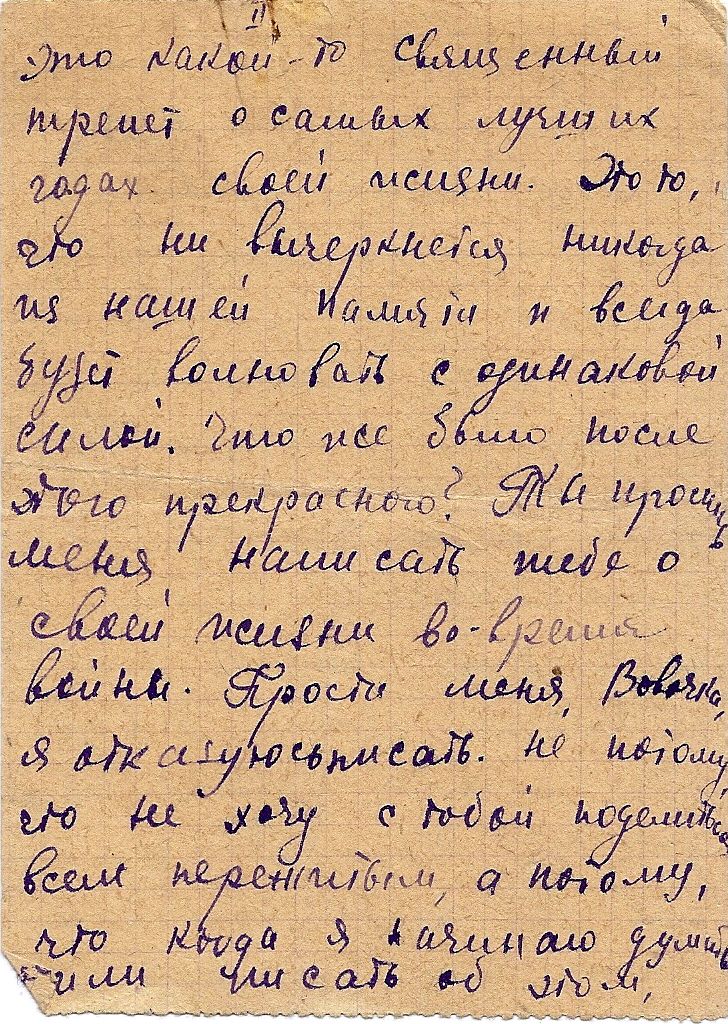 II
Это какой-то священный
трепет о самых лучших
годах своей жизни. Это то,
что ни вычеркнется никогда
из нашей памяти и всегда
будет волновать с одинаковой
силой. Что же было после
этого прекрасного? Ты просишь
меня написать тебе о
своей жизни во-время
войны. Прости меня, Вовочка,
я отказуюсь писать. Не потому,
что не хочу с тобой поделиться
всем пережитым, а потому,
что когда я начинаю думать
или писать об этом,